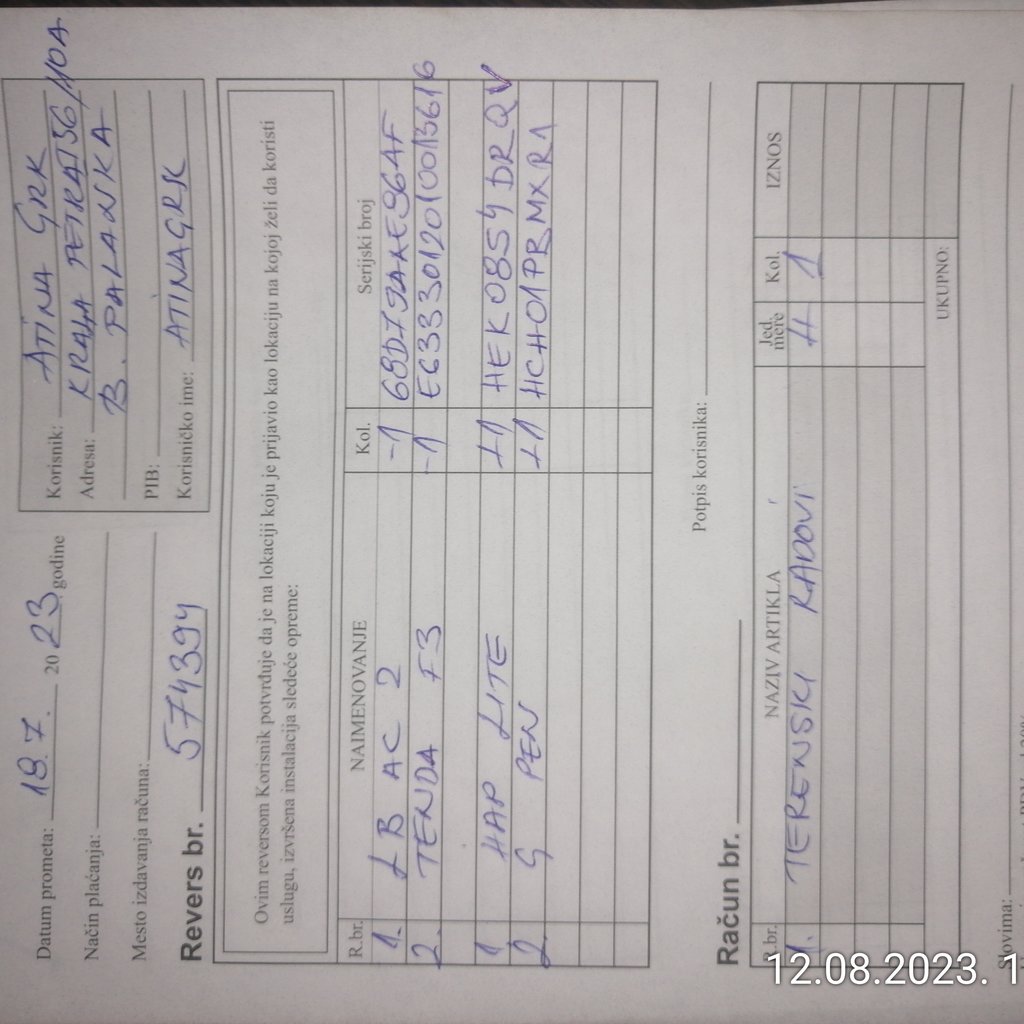 Datum prometa: 18.7. 2023 godine
Način plaćanja:
Mesto izdavanja računa:
Revers br. 574394
Korisnik: ATINA GRK
Adresa: KRALJA PETRA I 56/110A
B. PALANKA
PIB:
Korisničko ime: ATINAGRK
Ovim reversom Korisnik potvrđuje da je na lokaciji koju je prijavio kao lokaciju na kojoj želi da koristi
uslugu, izvršena instalacija sledeće opreme:
R.br. NAIMENOVANJE Kol. Serijski broj
1. LB AC 2 -1
2. TENDA F3 -1 E6333012010013616
1 HAP LITE +1 HEK0854DRQV
2. G PEN +1 HCH01PRMXR1
Potpis korisnika:
Račun br.
R.br. NAZIV ARTIKLA Jed. mere Kol. IZNOS
1. TERENSKI RADOVI H 1
UKUPNO:
Slovima:
12.08.2023. 1